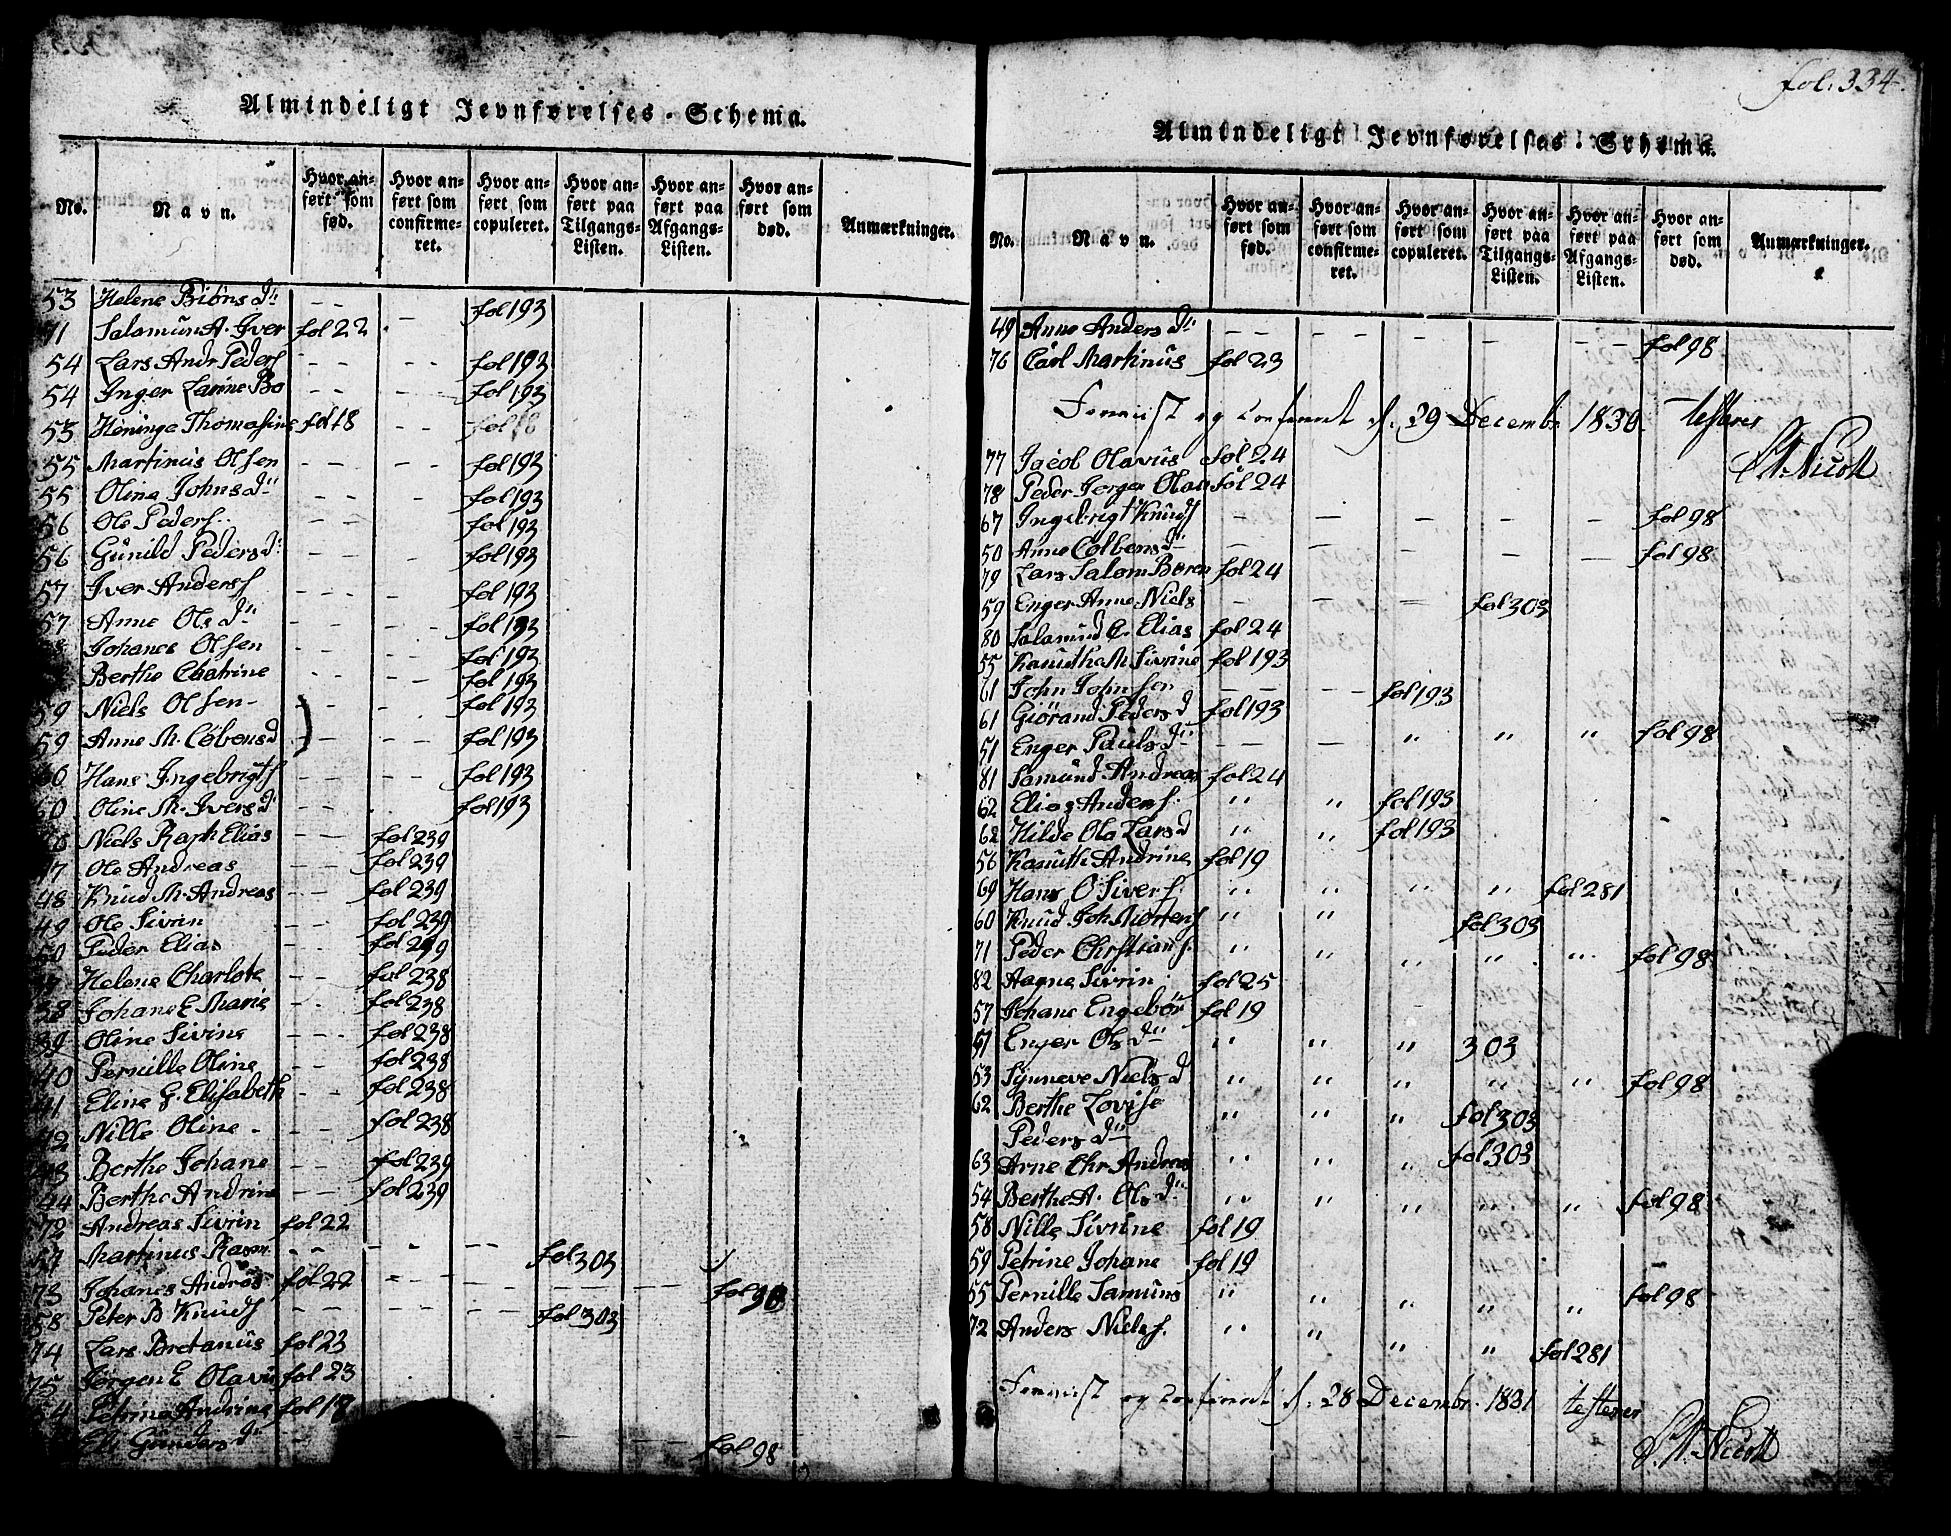 Almindeligt Jevnførelses-Schema.
No.
Navn.
Hvor anført som fød.
Hvor anført som confirmeret.
Hvor anført som copuleret.
Hvor anført paa Tilgangs-Listen.
Hvor anført paa Afgangs-Listen.
Hvor anført som død.
Anmærkninger.
53 Helene Biöns dr - - - fol 193
71 Salamun A. Iver fol 22
54 Lars Andr Peders - - - - fol 193
54 Inger Larine Bo - - - - fol 193
53 Heninge Thomasine fol 18 - - fol 18
55 Martinus Olsen - - - - fol 193
55 Oline Johns dr - - - - fol 193
56 Ole Peders - - fol 193
56 Gunild Peders dr - - - - fol 193
57 Iver Anders - - - - fol 193
57 Anne Ols dr - - - fol 193
Johanes Olsen - - - fol 193
Berthe Chatrine - - - - fol 193
59 Niels Olsen - - - fol 193
59 Anne M. Cöbens d - - - - fol 193
60 Hans Ingebrigts - - - - fol 193
60 Oline M. Ivers d - - - fol 193
Niels Rasm Elias - - fol 239
47 Ole Andreas fol 239
48 Knud M. Andreas - - fol 239
49 Ole Sivrin - - fol 239
50 Peder Elias - - fol 239
Helene Charlote - - fol 238
38 Johane E. Marie - - fol 238
39 Oline Sivrine - - - fol 238
40 Pernille Oline fol 238
41 Eline G. Elisabeth - - fol 238
42 Nille Oline - - - fol 238
43 Berthe Johane - - fol 239
44 Berthe Andrine - - fol 239
72 Andreas Sivrin fol 22
57 Martinus Rasm. - - - - - - fol 303
73 Johanes Andreas fol 22 fol 98
58 Peter B Knuds - - - - - - fol 303
74 Lars Bretanus fol 23
75 Jörgen E Olavu fol 23
54 Petrine Andrine fol 18
Eli Gunders dr - - - fol 98
fol. 334.
Almindeligt Jevnførelses-Schema.
No.
Navn.
Hvor anført som fød.
Hvor anført som confirmeret.
Hvor anført som copuleret.
Hvor anført paa Tilgangs-Listen.
Hvor anført paa Afgangs-Listen.
Hvor anført som død.
Anmærkninger.
49 Anne Anders dr - - - - - - - fol 98
76 Carl Martinus fol 23
og conferert d. 29 Decembr 1830. testerer
77 Jacob Olavus fol 24
78 Peder Jörgen Olau fol 24
67 Ingebrigt Knuds - - - - - fol 98
50 Anne Colbens dr - - - - - fol 98
79 Lars Salom Bören fol 24
59 Enger Anne Niels - - - fol 303
80 Salamund C. Elias fol 24
55 Kanuthe M. Sivrine fol 193
61 John Johnsen - - - - fol 193
61 Giörand Peders d fol 193
51 Enger Pauls dr - - - " " " fol 98
81 Samund Andreas fol 24
62 Elias Anders. " " fol 193
62 Hilde Ola Lars d " " fol 193
56 Kanuthe Andrine fol 19
69 Hans O Sivers. " " " " fol 281
60 Knud Joh. Mortens " " fol 303
71 Peder Christians. " " " " " fol 98
82 Aagne Sivrin fol 25
57 Johane Engebör fol 19
61 Enger Ols dr " " " 303
53 Synneve Niels d " " " " " fol 98
62 Berthe Lovise " " " fol 303
Peders dr
63 Arne Chr Andreas " " " fol 303
54 Berthe A. Ols dr " " " " " fol 98
58 Nille Sivrine fol 19
59 Petrine Johane fol 19
55 Pernille Samuns " " " " " fol 98
72 Anders Niels. " " " " fol 281
og conferert d. 28 Decembr. 1831 testerer